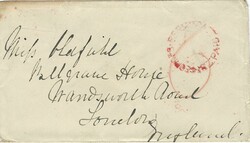 Miss Oldfield
Bellgrave House
Wandsworth Road
London
England.